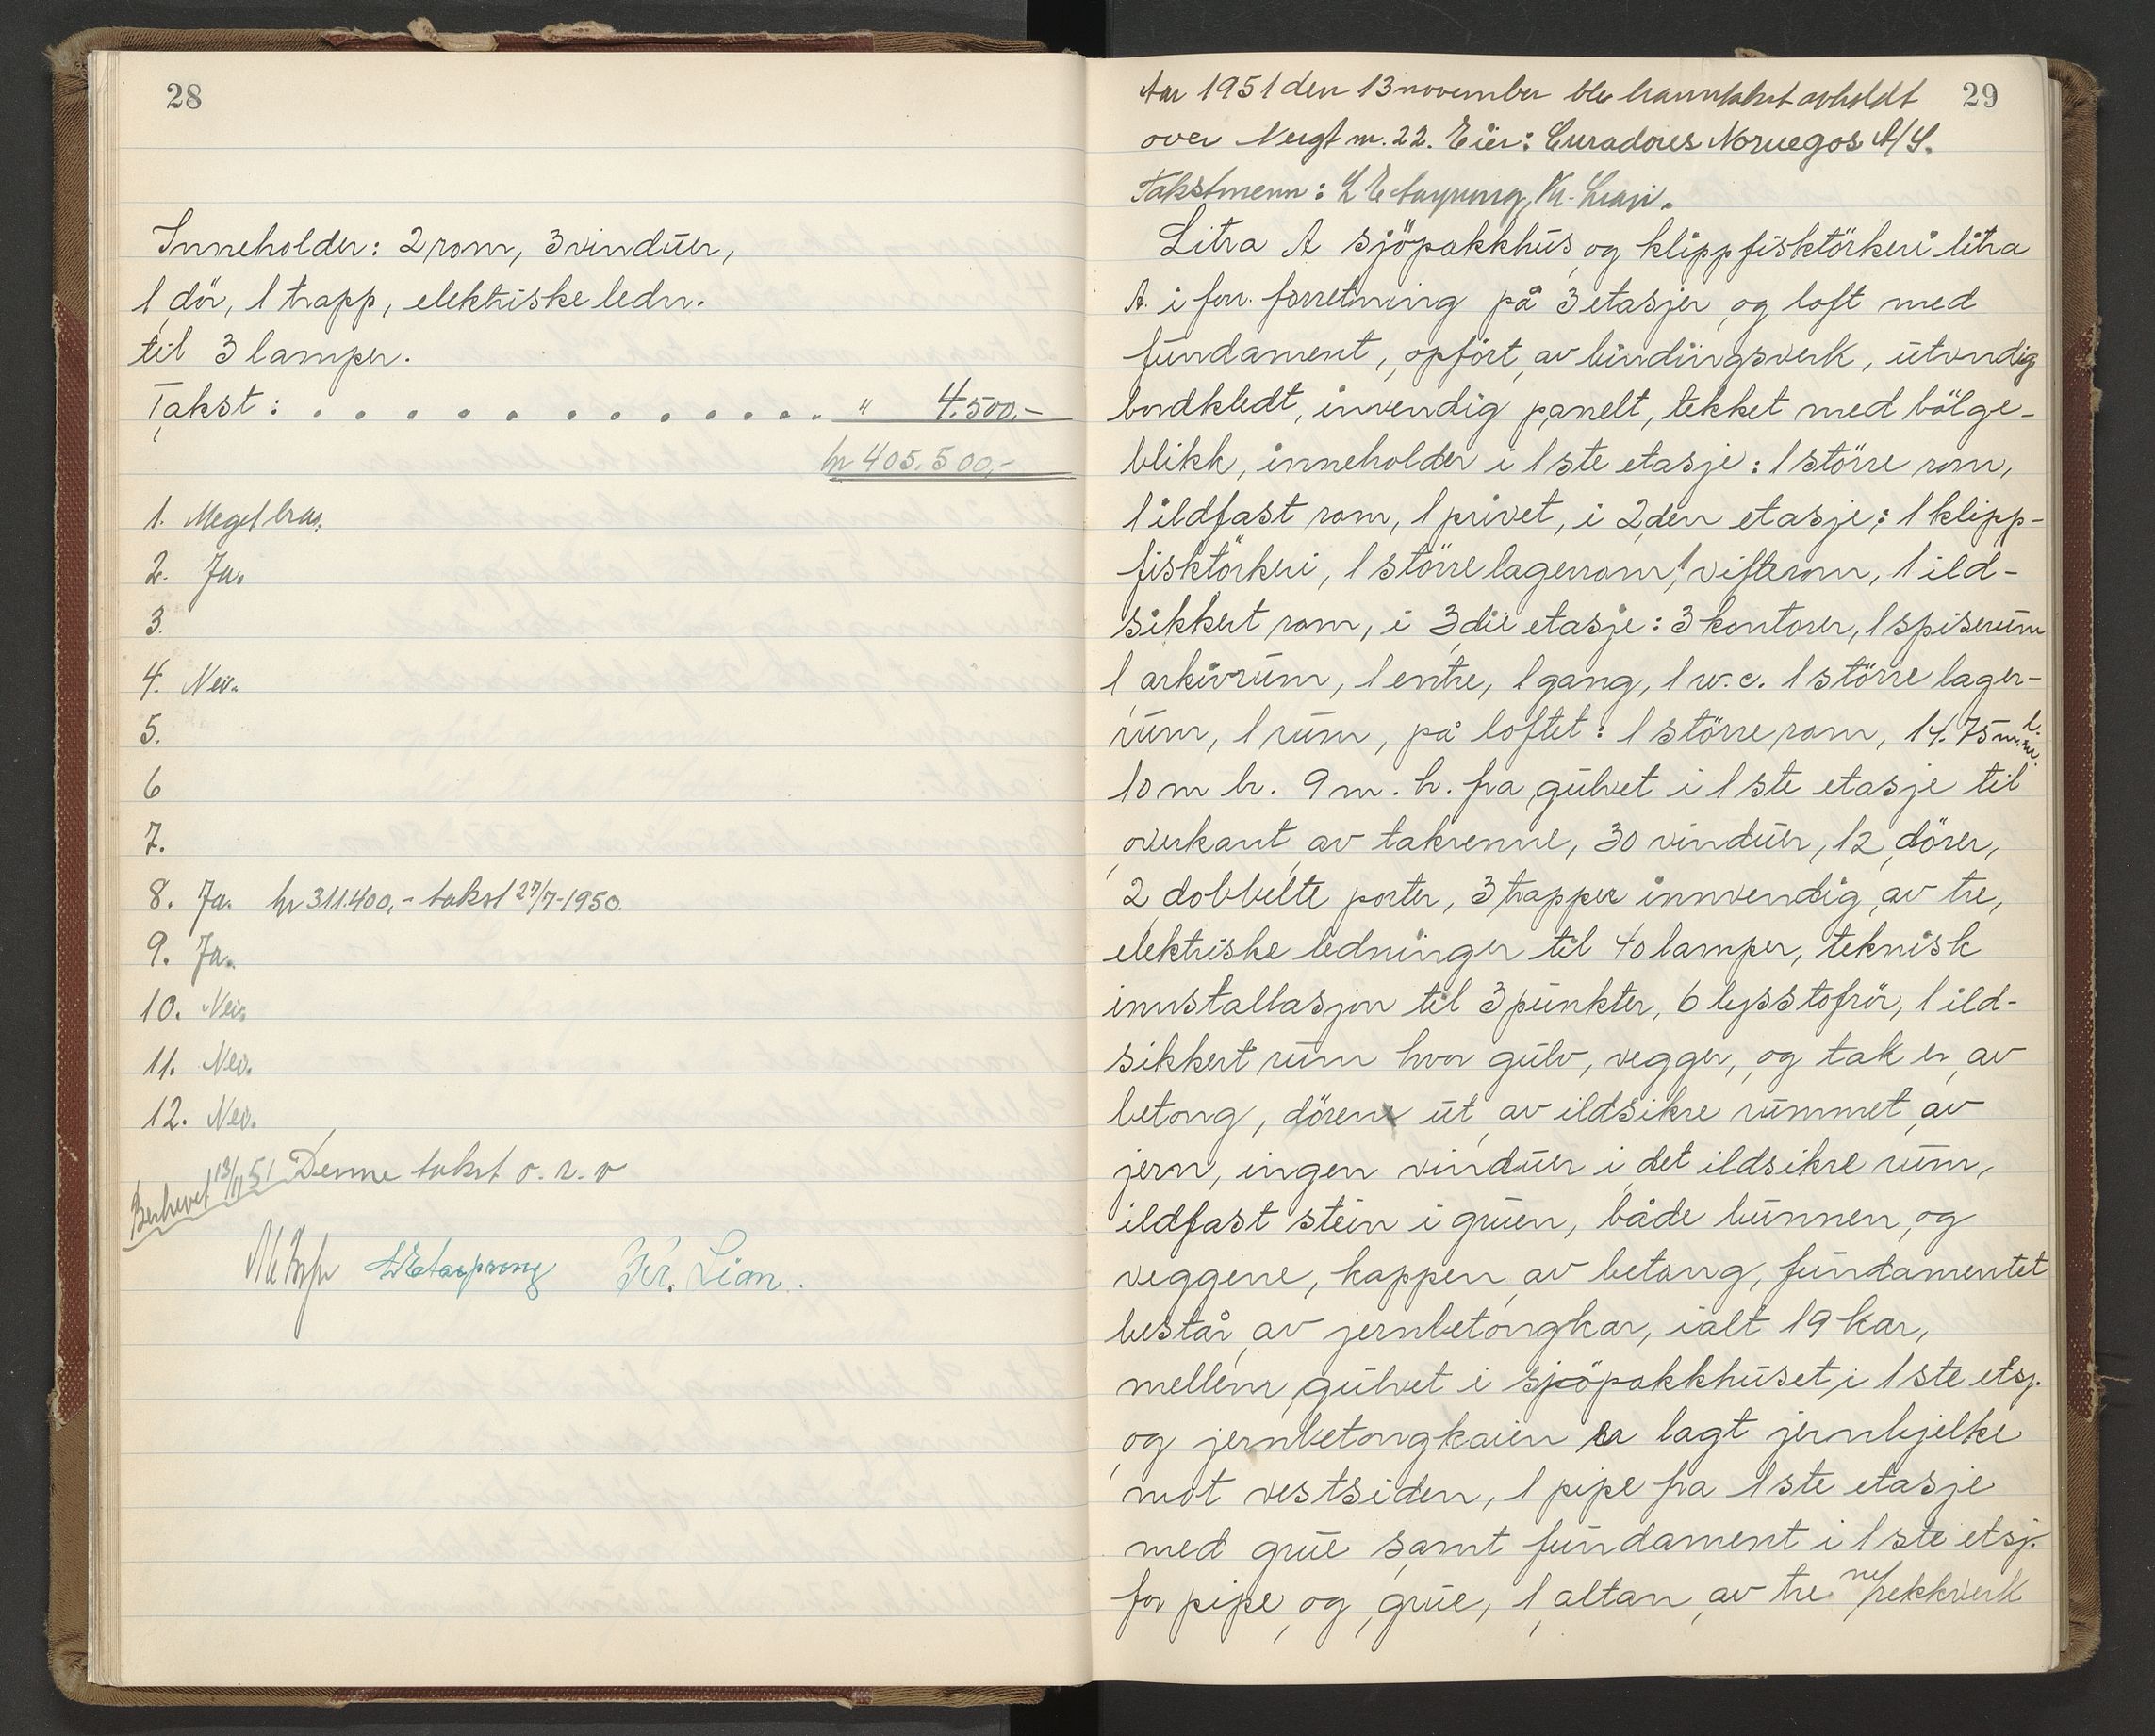 28
Inneholder: 2 rom, 3 vinduer,
1 dör, 1 trapp, elektriske ledn.
til 3 lamper.
Takst: . . . . . . . . . . . . " 4.500,-
kr 405.500,-
1. Meget bra.
2. Ja.
3.
4. Nei.
5.
6
7.
8. Ja. kr 311.400,- takst 27/7-1950.
9. Ja.
10. Nei.
11. Nei.
12. Nei.
13/11 51 Denne takst o. r. v
Kr. Lian.
29
Aar 1951 den 13 november ble branntakst avholdt
over Nergt nr. 22. Eier: Curadores Noruegos A/S.
Takstmenn:
Litra A sjöpakkhus og klippfisktörkeri litra
A. i forr. forretning på 3 etasjer og loft med
fundament, opfört av bindingsverk, utvendig
bordkledt, invendig panelt, tekket med bölge-
blikk, inneholder i 1ste etasje: 1 större rom,
1 ildfast rom, 1 privet, i 2den etasje: 1 klipp-
fisktörkeri, 1 större lagerrom, 1 vifterom, 1 ild-
sikkert rom, i 3die etasje: 3 kontorer, 1 spiserum
1 arkivrum, 1 entre, 1 gang, 1 w.c. 1 större lager-
rum, 1 rum, på loftet: 1 större rom, 14.75 m. l.
10 m br. 9 m. h. fra gulvet i 1ste etasje til
overkant av takrenne, 30 vinduer, 12 dörer,
2 dobbelte porter, 3 trapper innvendig av tre,
elektriske ledninger til 40 lamper, teknisk
innstallasjon til 3 punkter, 6 lysstofrör, 1 ild-
sikkert rum hvor gulv, vegger, og tak er av
betong, dören ut av ildsikre rummet av
jern, ingen vinduer i det ildsikre rum,
ildfast stein i gruen, både bunnen og
veggene, kappen av betong, fundamentet
består av jernbetongkar, ialt 19 kar,
mellem gulvet i sjöpakkhuset i 1ste etsj.
og jernbetongkaien er lagt jernbjelke
mot vestsiden, 1 pipe fra 1ste etasje
med grue samt fundament i 1ste etsj.
for pipe og grue, 1 altan av tre m/rekkverk